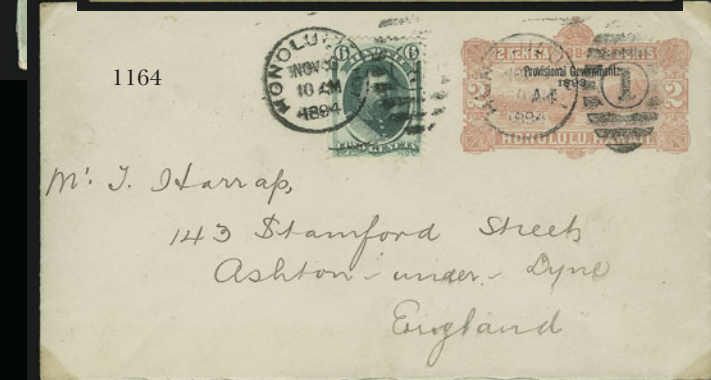 1164
HONOLULU
NOV
10 AM
1894
6 6
2 2
Provisional Government
1893
1
1894
HONOLULU HAWAII
Mr. J. Harrap,
143 Stamford Street
Ashton-under-Lyne
England